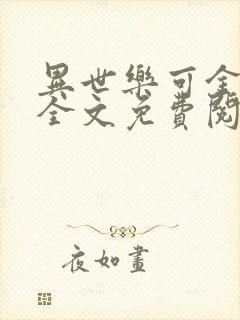 異世樂可全
全文免費閱
夜如畫